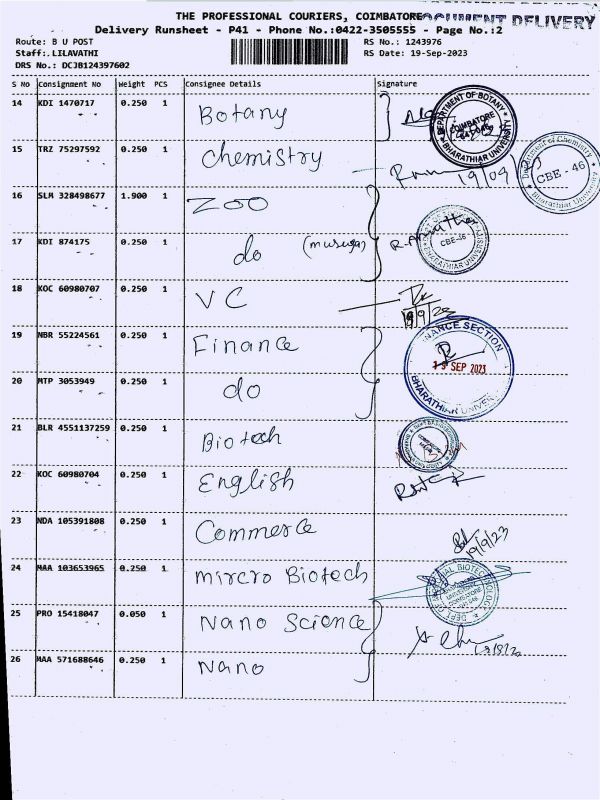 THE PROFESSIONAL COURIERS, COIMBATORE
DOCUMENT DELIVERY
Delivery Runsheet - P41 - Phone No.:0422-3505555 - Page No.:2
Route: B U POST
RS No.: 1243976
Staff:.LILAVATHI
RS Date: 19-Sep-2023
DRS No.: DCJB124397602
S No Consignment No Weight PCS Consignee Details Signature
14 KDI 1470717 0.250 1 Botany
DEPARTMENT OF BOTANY
COIMBATORE
BHARATHIAR UNIVERSITY
15 TRZ 75297592 0.250 1 Chemistry
19/09/
Department of Chemistry
CBE - 46
Bharathiar University
16 SLM 328498677 1.900 1 Zoo
17 KDI 874175 0.250 1 do (museum)
CBE-46
BHARATHIAR UNIVERSITY
18 KOC 60980707 0.250 1 VC
19/9/23
19 NBR 55224561 0.250 1 Finance
FINANCE SECTION
19 SEP 2023
BHARATHIAR UNIVER
20 MTP 3053949 0.250 1 do
21 BLR 4551137259 0.250 1 Biotech
22 KOC 60980704 0.250 1 English
23 NDA 105391808 0.250 1 Commerce
19/9/23
24 MAA 103653965 0.250 1 mircro Biotech
25 PRO 15418047 0.050 1 Nano Science
26 MAA 571688646 0.250 1 Nano